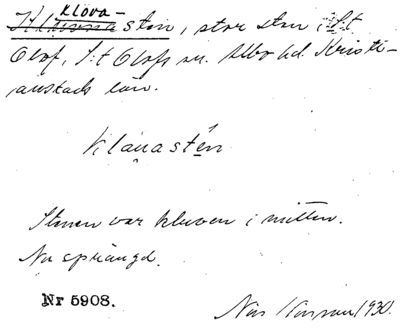 Klova-
sten, stor sten i S:t
Olof, S:t Olofs sn. Albo hd. Kristi-
anstads län.
Klåuastén
Stenen var kluven i mitten.
Nu sprängd.
Nr 5908.
Nils 1930.